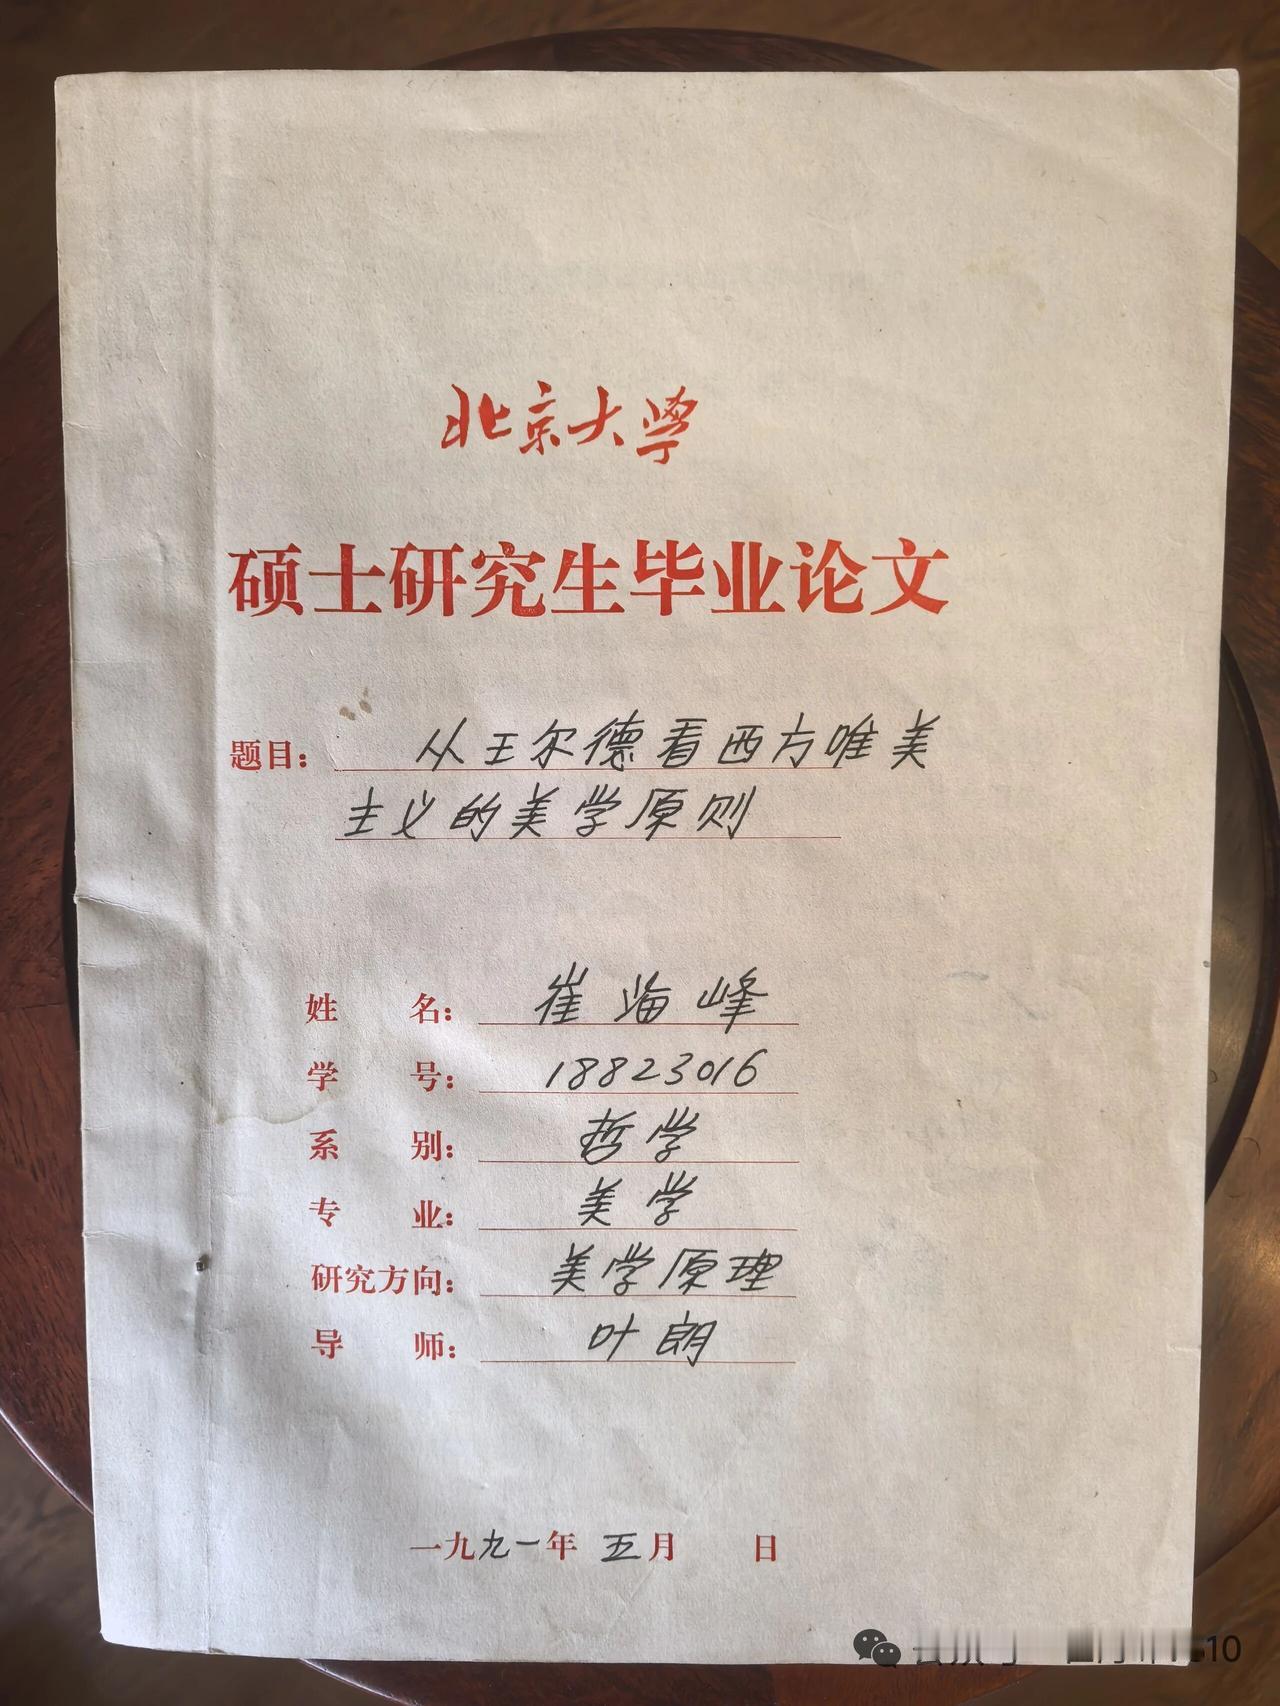 北京大学
硕士研究生毕业论文
题目： 从王尔德看西方唯美
主义的美学原则
姓名： 崔海峰
学号： 18823016
系别： 哲学
专业： 美学
研究方向： 美学原理
导师： 叶朗
一九九一年 五月 日